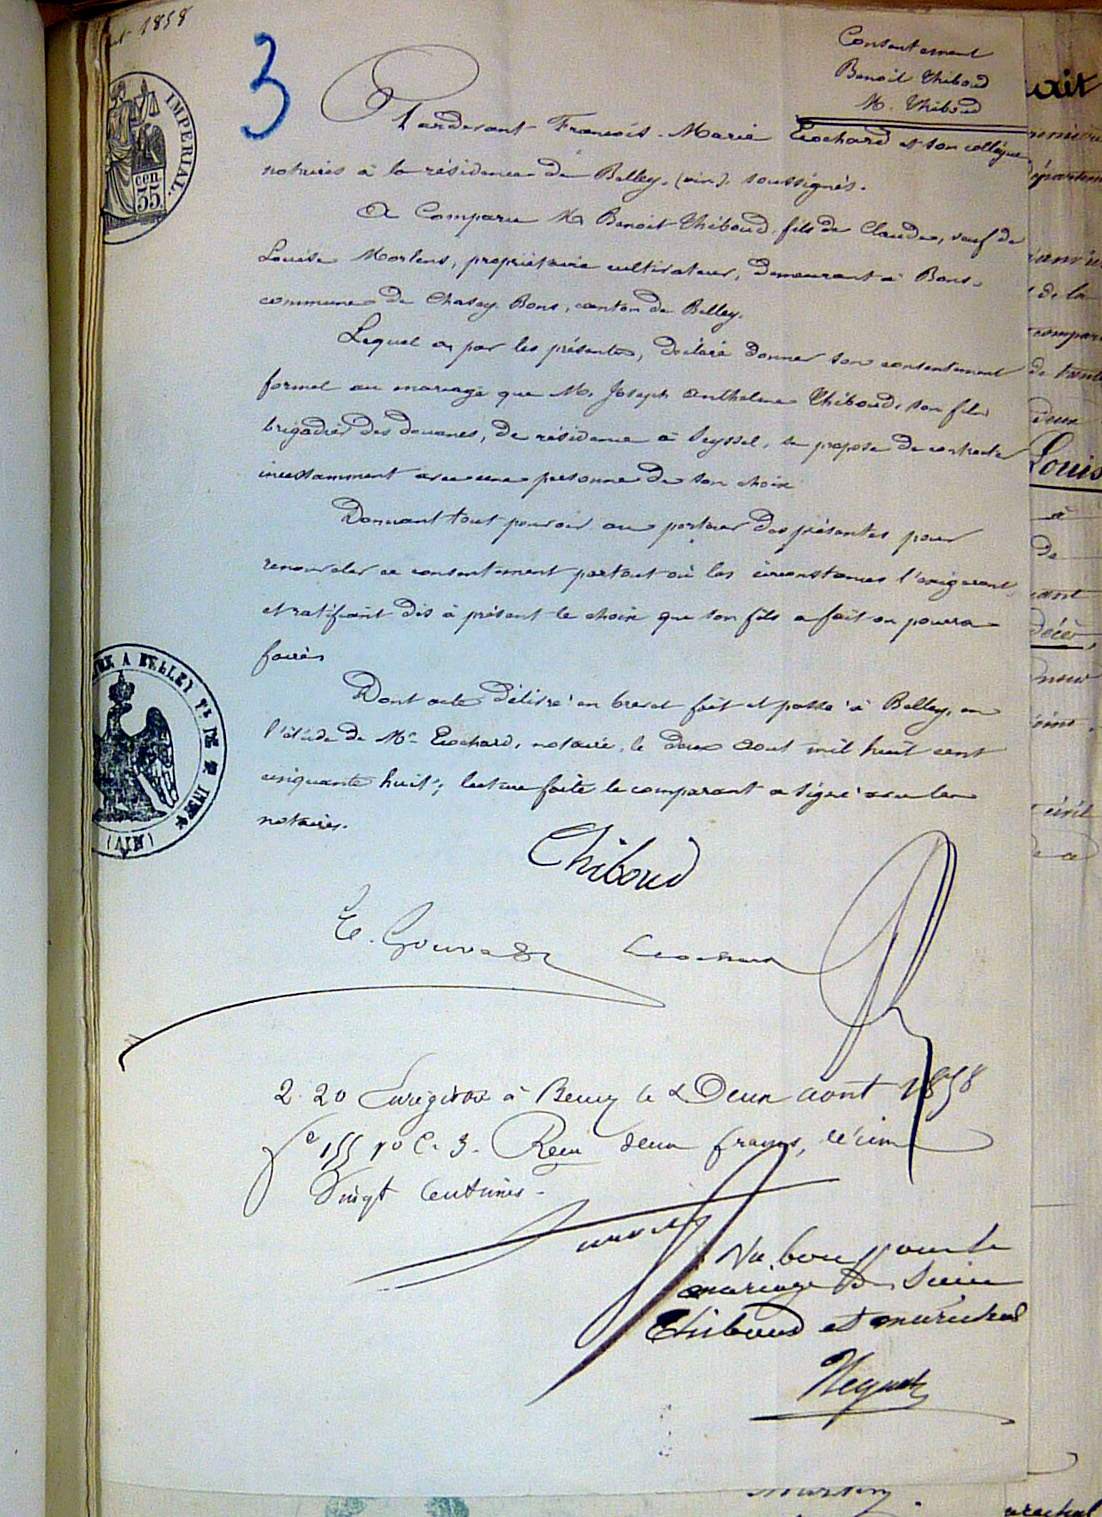 1858
3
IMPERIAL.
CEN.
35.
Consentement
Benoit Thiboud
M. Thiboud
Pardevant François-Marie Trochard et son collègue
notaires à la résidence de Belley, (ain), soussignés.
A Comparu M. Benoit Thiboud, fils de Claude, veuf de
Louise Morlens, propriétaire cultivateur, demeurant à Bons,
commune de Chasey-Bons, canton de Belley.
Lequel a par les présentes, déclaré donner son consentement
formel au mariage que M. Joseph Anthelme Thiboud, son fils
brigadier des douanes, de résidence à Seyssel, se propose de contracter
incessamment avec une personne de son choix
Donnant tout pouvoir au porteur des présentes pour
renouveler ce consentement partout où les circonstances l'exigeront,
et ratifiant dès à présent le choix que son fils a fait ou pourra
faire.
Dont acte délivré en brevet fait et passé à Belley, en
l'étude de Me Trochard, notaire, le deux aout mil huit cent
cinquante huit; lecture faite le comparant a signé avec les
notaires.
A BELLEY
(AIN)
Thiboud
2.20 Enregistré à Belley le Deux août 1858
fo 155 vo C. 3. Reçu deux francs, décime
Vingt Centimes.
Vu bon pour le
mariage de Sieur
Thiboud et maréchal
Louis
de